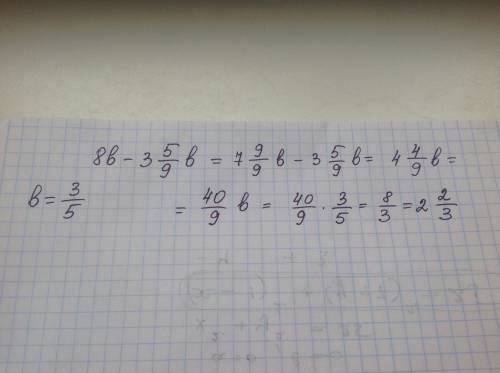 8в - 3 5/9 в = 7 9/9 в - 3 5/9 в = 4 4/9 в =
в = 3/5
= 40/9 в = 40/9 · 3/5 = 8/3 = 2 2/3